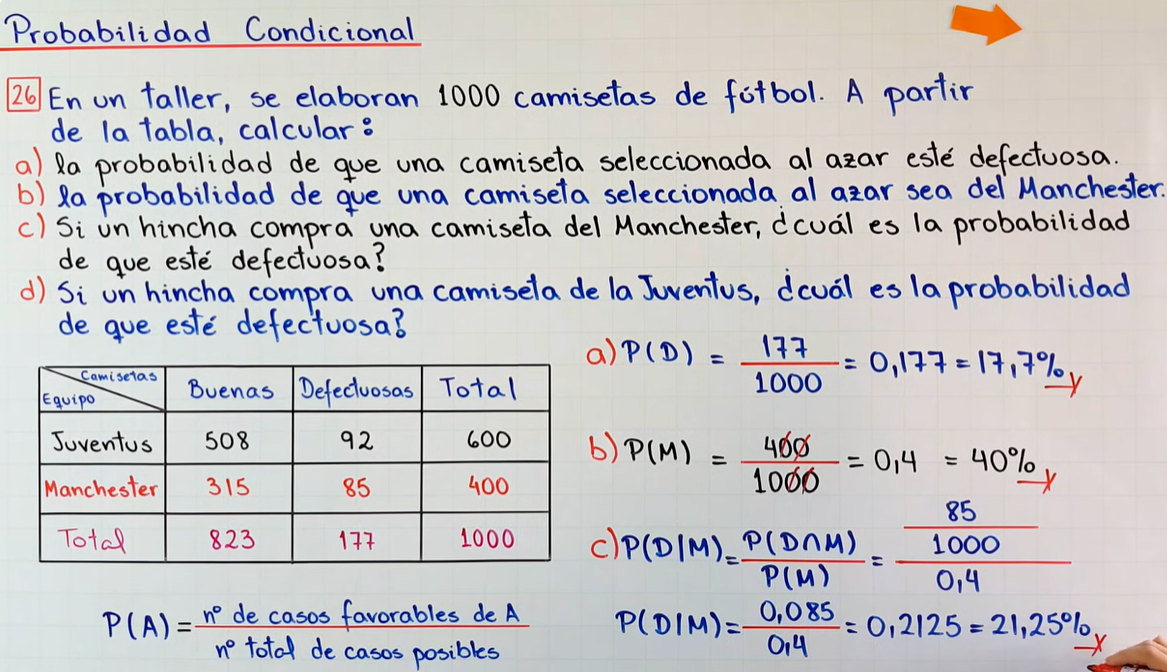 Probabilidad Condicional
26 En un taller, se elaboran 1000 camisetas de fútbol. A partir
de la tabla, calcular:
a) la probabilidad de que una camiseta seleccionada al azar esté defectuosa.
b) la probabilidad de que una camiseta seleccionada al azar sea del Manchester.
c) Si un hincha compra una camiseta del Manchester, ¿cuál es la probabilidad
de que esté defectuosa?
d) Si un hincha compra una camiseta de la Juventus, ¿cuál es la probabilidad
de que esté defectuosa?
Camisetas
Equipo
Buenas Defectuosas Total
Juventus 508 92 600
Manchester 315 85 400
Total 823 177 1000
P(A) = nº de casos favorables de A
nº total de casos posibles
a) P(D) = 177 / 1000 = 0,177 = 17,7%
b) P(M) = 400 / 1000 = 0,4 = 40%
c) P(D|M) = P(D∩M) / P(M) = 85 / 1000 / 0,4
P(D|M) = 0,085 / 0,4 = 0,2125 = 21,25%